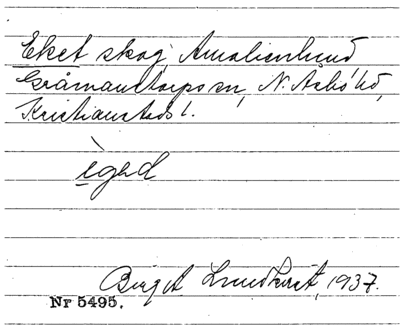 Eket skog, Amalienlund
Gråmanstorps sn, N. Åsbo hd,
Kristianstads l.
èged
Birgit Lundkvist, 1937.
Nr 5495.